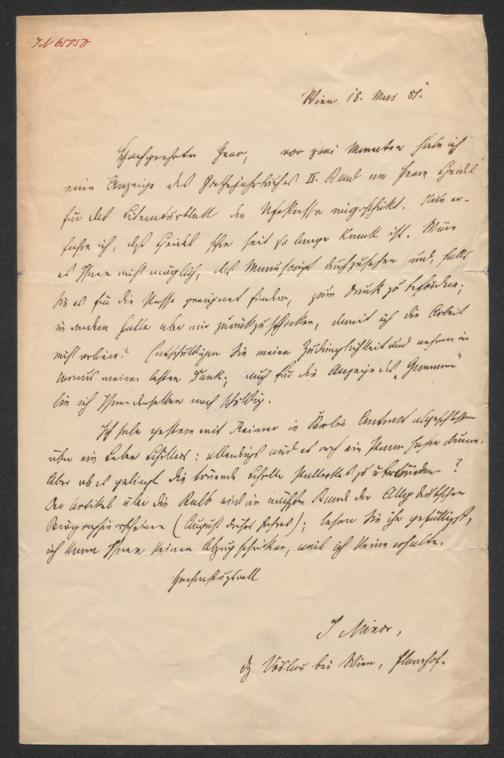 IN 65852
Wien 18. Mai 81.
Hochgeehrter Herr, vor zwei Monaten habe ich
eine Anzeige des Goethejahrbuches II. Band an Herrn Hendel
für das Literaturblatt der Presse eingeschickt. Nun er-
fahre ich, daß Hendel schon seit so lange krank ist. Wäre
es Ihnen nicht möglich, das Manuscript durchzusehen und, falls
Sie es für die Presse geeignet finden, zum Druck zu befördern;
in andern Falle aber mir zurückzuschicken, damit ich die Arbeit
nicht verliere? Entschuldigen Sie meine Zudringlichkeit und nehmen im
voraus meinen besten Dank; auch für die Anzeige des
bin ich Ihnen denselben noch schuldig.
Ich habe gestern mit Reimer in Berlin Contract abgeschlossen
über ein Leben Schillers: allerdings wird es noch ein paar Jahre dauern.
Aber ob es gelingt die
Der Artikel über die Kalb wird im nächsten Bande der Allg. deutschen
Biographie erscheinen (August dieses Jahres); lesen Sie ihn gefälligst,
ich kann Ihnen keinen Abzug schicken, weil ich keine erhalte.
Hochachtungsvoll
J Minor,
Vöslau bei Wien,